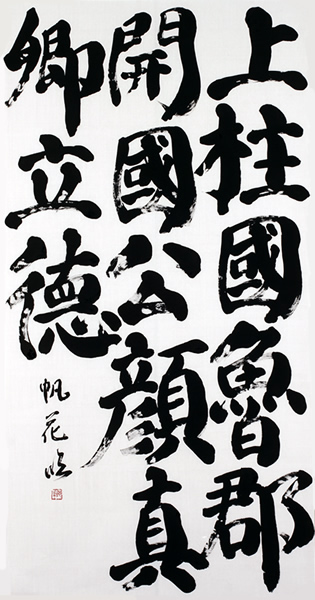 上柱國魯郡
開國公顔真
卿立德
帆花臨